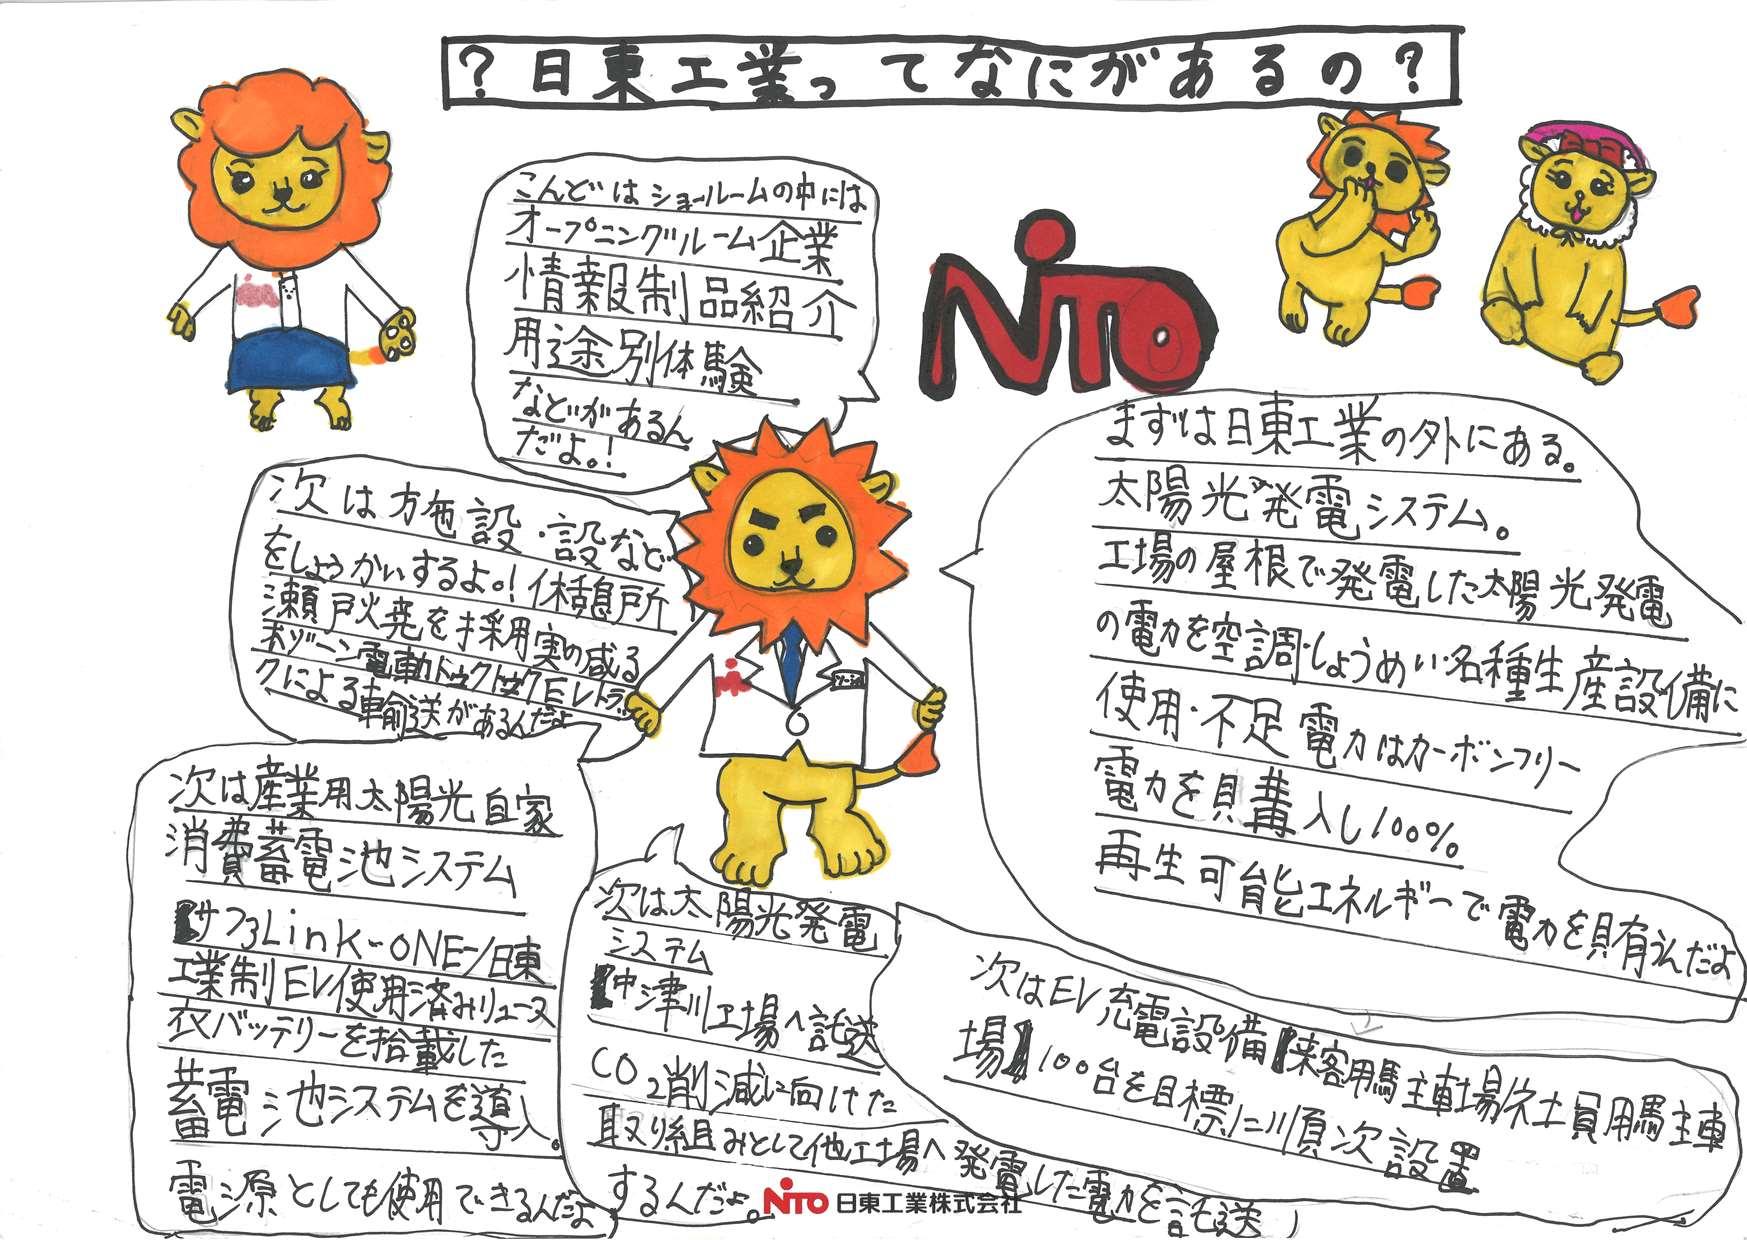 ？日東工業ってなにがあるの？
NITO
まずは日東工業の外にある。
太陽光発電システム。
工場の屋根で発電した太陽光発電
の電力を空調・しょうめい・各種生産設備に
使用・不足電力はカーボンフリー
電力を購入し100%
再生可能エネルギーで電力を
次はEV充電設備【来客用駐車場/社員用駐車
場】100台を目標に順次設置
次は太陽光発電
システム
【中津川工場へ託送
CO2削減に向けた
取り組みとして他工場へ発電した電力を託送
するんだよ。
次は産業用太陽光自家
消費蓄電池システム
【サファLink-ONE-/日東
工業制EV使用済みリユース
バッテリーを搭載した
蓄電池システムを導入。
電源としても使用できるんだよ
次は施設・設など
をしょうかいするよ。！休憩所
瀬戸焼を採用実の成る
ボゾーン電動トゥクトゥクEVトラッ
クによる輸送があるんだよ
こんどはショールームの中には
オープニングルーム企業
情報制品紹介
用途別体験
などがあるん
だよ。！
NITO 日東工業株式会社